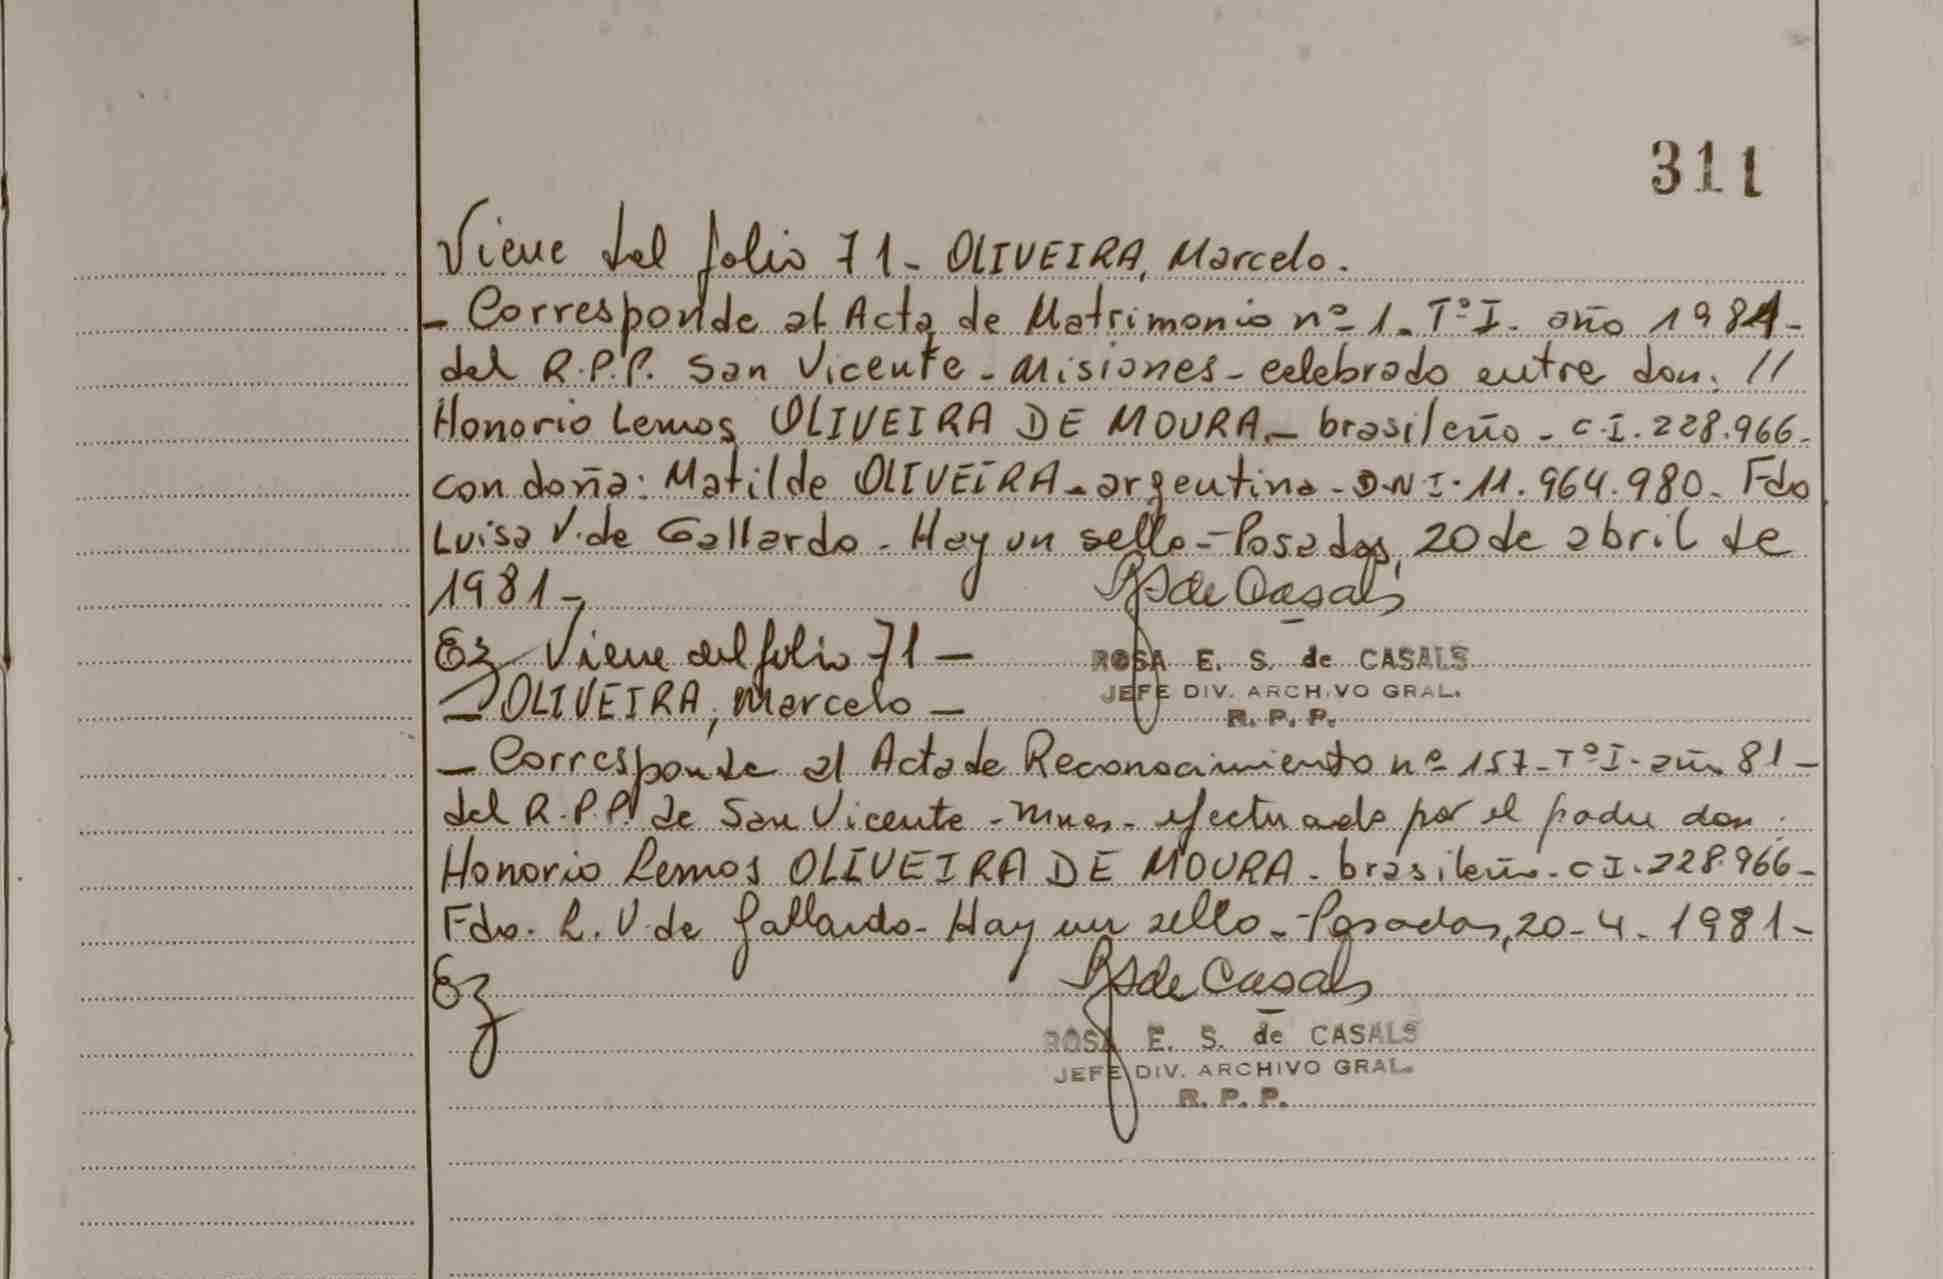 311
Viene del folio 71- OLIVEIRA, Marcelo.
- Corresponde al Acta de Matrimonio nº 1. Tº I. año 1981-
del R.P.P. San Vicente - Misiones - celebrado entre don: //
Honorio Lemos OLIVEIRA DE MOURA.- brasileño - C.I. 228.966-
con doña: Matilde OLIVEIRA - argentina - D.N.I. 11.964.980. Fdo
Luisa V. de Gallardo - Hay un sello - Posadas, 20 de abril de
1981-
RSde Casals
Viene del folio 71 -
ROSA E. S. de CASALS
- OLIVEIRA, Marcelo -
JEFE DIV. ARCHIVO GRAL.
R. P. P.
- Corresponde al Acta de Reconocimiento nº 157- Tº I- año 81-
del R.P.P. de San Vicente - Mnes - efectuado por el padre don:
Honorio Lemos OLIVEIRA DE MOURA - brasileño - C I. 228.966-
Fdo. L. V. de Gallardo - Hay un sello - Posadas, 20-4-1981-
RSde Casals
ROSA E. S. de CASALS
JEFE DIV. ARCHIVO GRAL.
R. P. P.